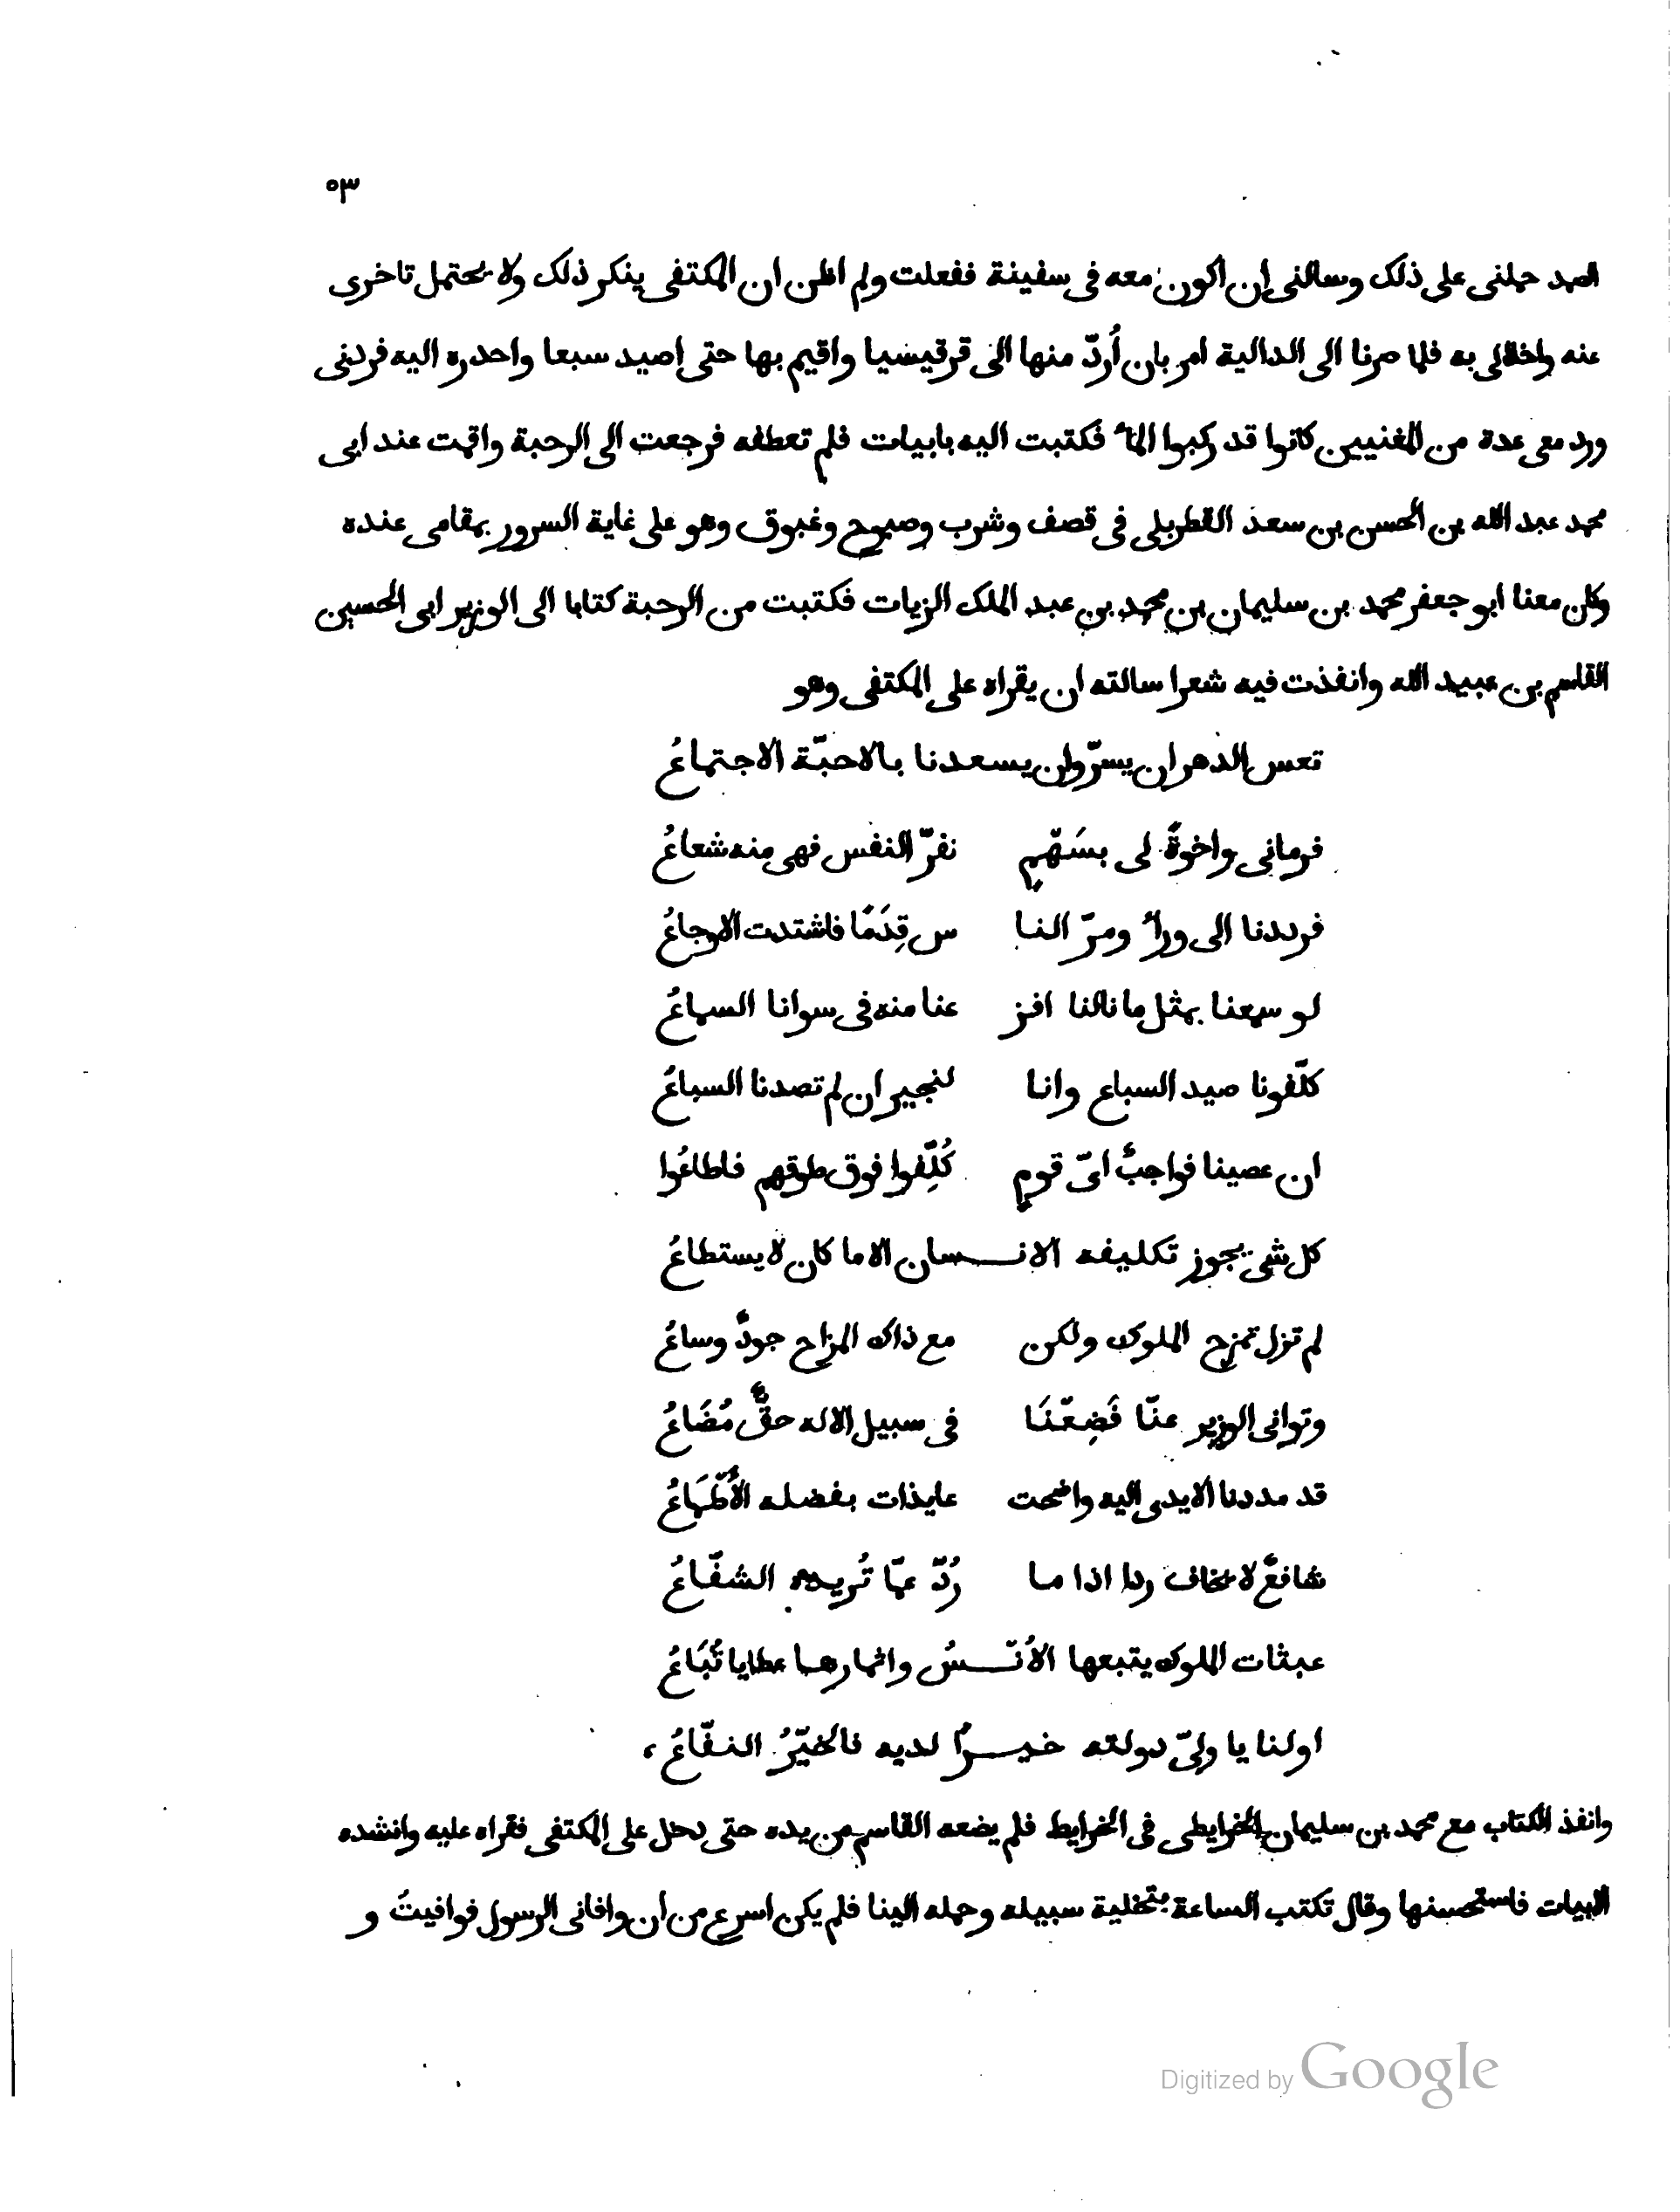 ٥٣
الصمد حملنى على ذلك وسالنى ان اكون معه فى سفينة ففعلت ولم اظن ان المكتفى ينكر ذلك ولا يحتمل تاخرى
عنه واخلالى به فلما صرنا الى الدالية امر بان أُردّ منها الى قرقيسيا واقيم بها حتى اصيد سبعا واحدره اليه فردنى
ورد معى عدة من المغنيين كانوا قد ركبوا الماء فكتبت اليه بابيات فلم تعطفه فرجعت الى الرحبة واقمت عند ابى
محمد عبد الله بن الحسن بن سعد القطربلى فى قصف وشرب وصبوح وغبوق وهو على غاية السرور بمقامى عنده
وكان معنا ابو جعفر محمد بن سليمان بن محمد بن عبد الملك الزيات فكتبت من الرحبة كتابا الى الوزير ابى الحسين
القاسم بن عبيد الله وانفذت فيه شعرا سالته ان يقراه على المكتفى وهو
تعس الدهر ان يسرّ وان يسعدنا بالاحبّة الاجتماعُ
فرمانى واخوةً لى بسَهْمٍ نفرّ النفس فهى منه شعاعُ
فرددنا الى وراء ومرّ النا س قِدَمًا فاشتدت الاوجاعُ
لو سمعنا بمثل ما نالنا افز عنا منه فى سوانا السماعُ
كلّفونا صيد السباع وانا لنجير ان لم تصدنا السباعُ
ان عصينا فواجبٌ اىّ قومٍ كُلِّفوا فوق طوقهم فاطاعُوا
كل شى يجوز تكليفه الانسان الا ما كان لا يستطاعُ
لم تزل تمزح الملوك ولكن مع ذاك المزاح جودٌ وساعُ
وتوانى الوزير عنّا فَضِعْنَا فى سبيل الاله حقٌّ مُضَاعُ
قد مددنا الايدى اليه واضحت عايذات بفضله الأَطْمَاعُ
شافعٌ لا يخاف ردا اذا ما رُدّ عمّا تُريده الشفّاعُ
عبثات الملوك يتبعها الأُنْسُ واثمارها عطايا تُبَاعُ
اولنا يا ولىّ دولته خيرًا لديه فالخيّرُ النفّاعُ ،
وانفذ الكتاب مع محمد بن سليمان الخرايطى فى الخرايط فلم يضعه القاسم من يده حتى دخل على المكتفى فقراه عليه وانشده
البيات فاستحسنها وقال تكتب الساعة بتخلية سبيله وحمله الينا فلم يكن اسرع من ان وافانى الرسول فوافيت و
Digitized by Google